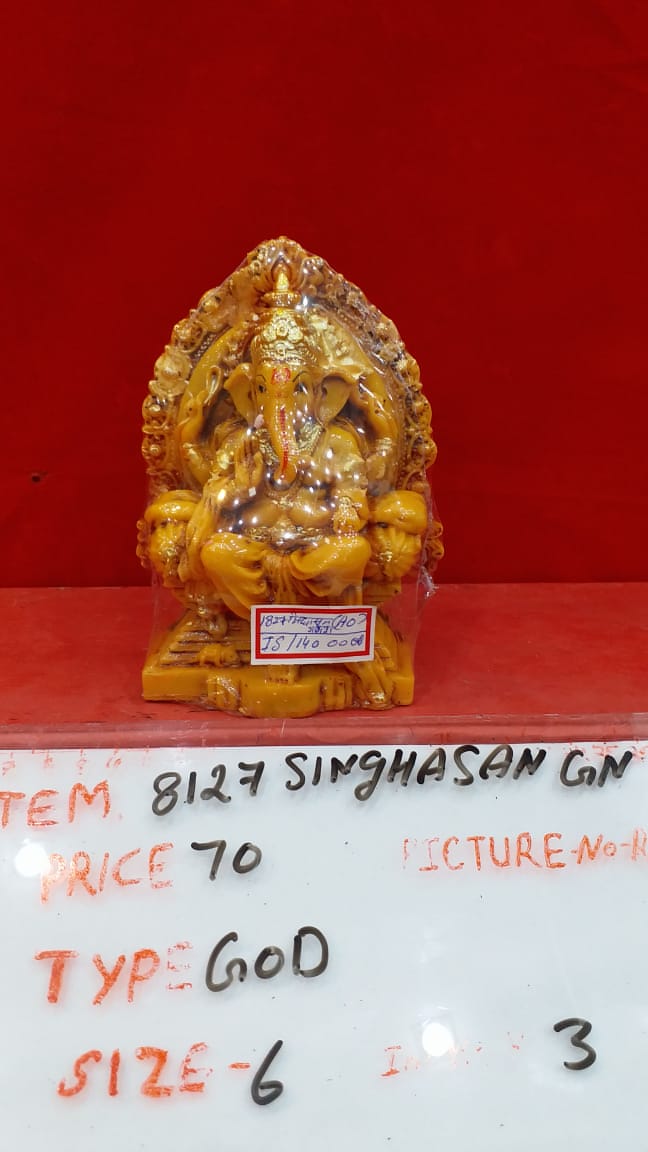 JS/140 00
TEM. 8127 SINGHASAN GN
PRICE 70
PICTURE-NO-
TYPE GOD
SIZE-6
3